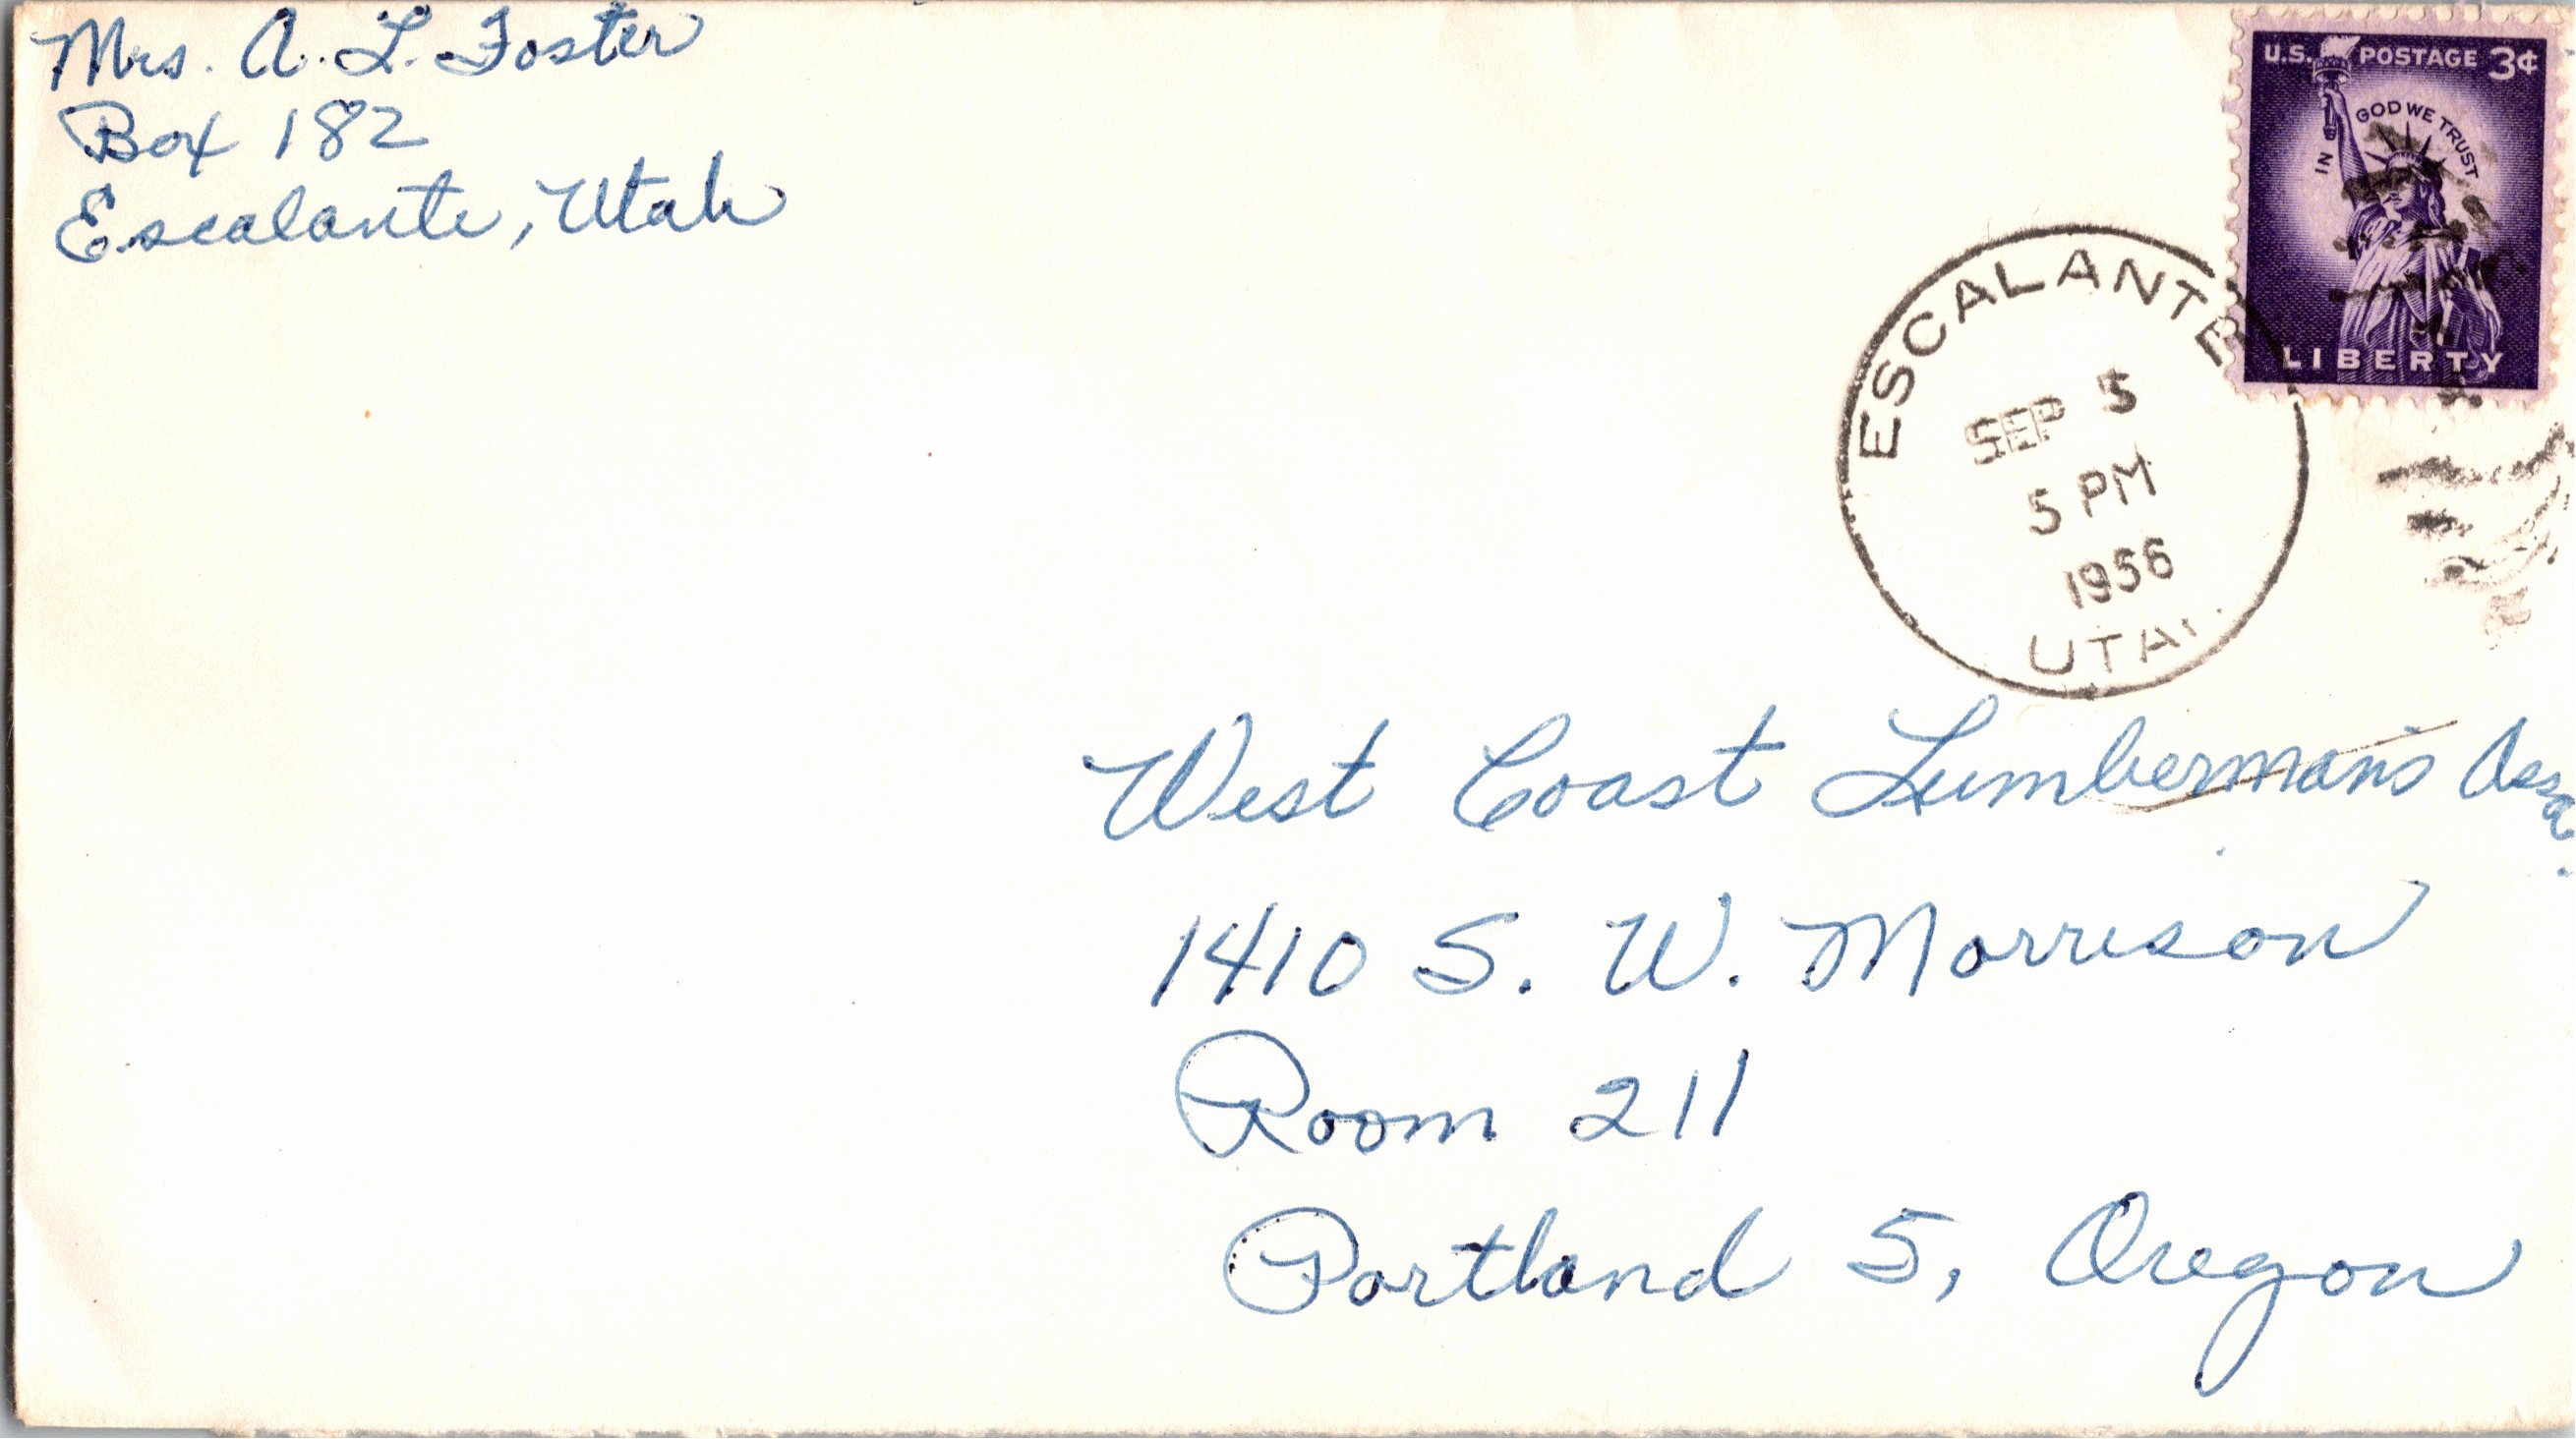 Mrs. A. L. Foster
Box 182
Escalante, Utah
U.S. POSTAGE 3¢
IN GOD WE TRUST
LIBERTY
ESCALANTE
SEP 5
5 PM
1956
UTAH
West Coast Lumberman's Assn.
1410 S. W. Morrison
Room 211
Portland 5, Oregon